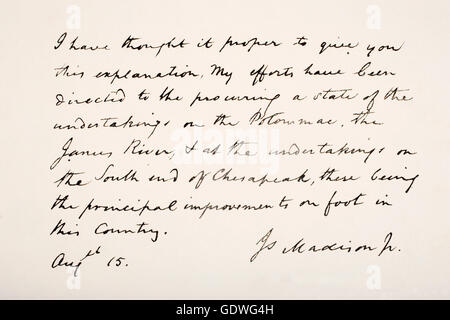 I have thought it proper to give you
this explanation. My efforts have been
directed to the procuring a state of the
undertakings on the Potowmac, the
James River, & at the undertakings on
the South end of Chesapeak, these being
the principal improvements on foot in
this Country.
Js Madison Jr.
Augst 15.
alamy stock photo
GDWG4H
www.alamy.com